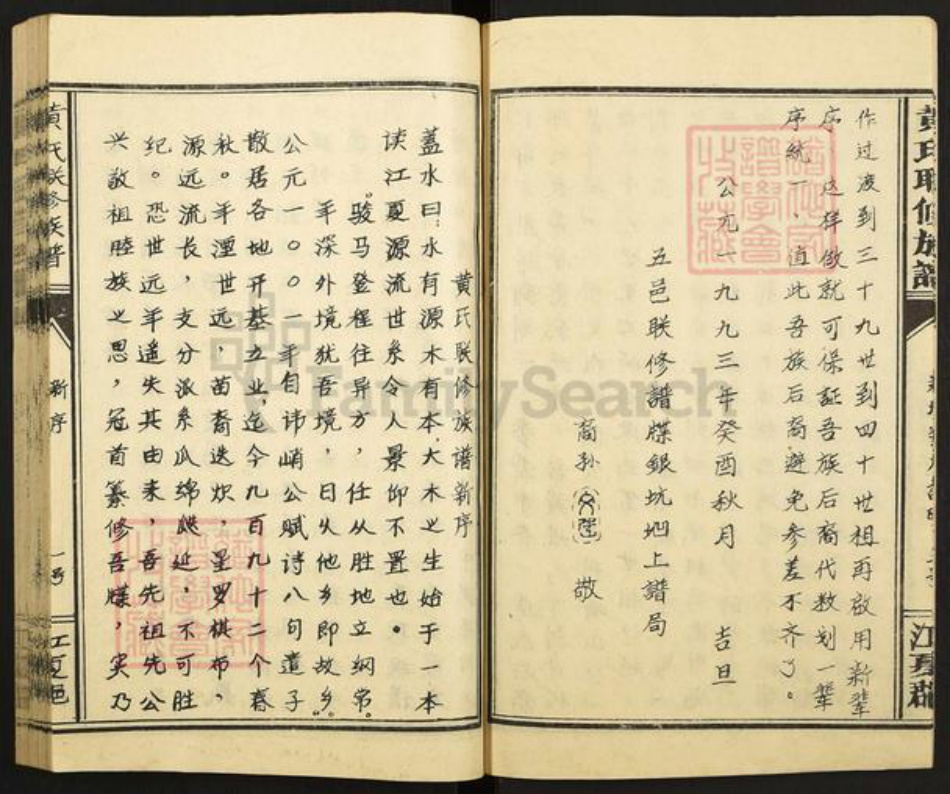 作过渡到三十九世到四十世相再啟用新辈
序,这样做就可保証吾族后裔代数划一辈
序统一、值此吾族后裔避免参差不齐了。
公元一九九三年癸酉秋月 吉旦
五邑联修譜牒銀坑坳上譜局
裔孙 敬
黄氏联修族譜新序
蓋水曰:水有源木有本,大木之生始于一本
读江夏源流世系令人景仰不置也。
骏马登程往异方,任从胜地立纲常。
年深外境犹吾境,日久他乡即故乡。
公元一〇〇一年自讳峭公赋诗八句遣子
散居各地开基立业,迄今九百九十二个春
秋。年湮世远,苗裔迭炽,星罗棋布,
源远流长,支分派系瓜绵瓞延,不可胜
纪。恐世远年遥失其由来,吾先祖先公
兴敬祖睦族之思,冠首纂修吾牒,实乃
黄氏联修族譜
新序
一号
江夏邑
黄氏联修族譜
江夏郡
FamilySearch